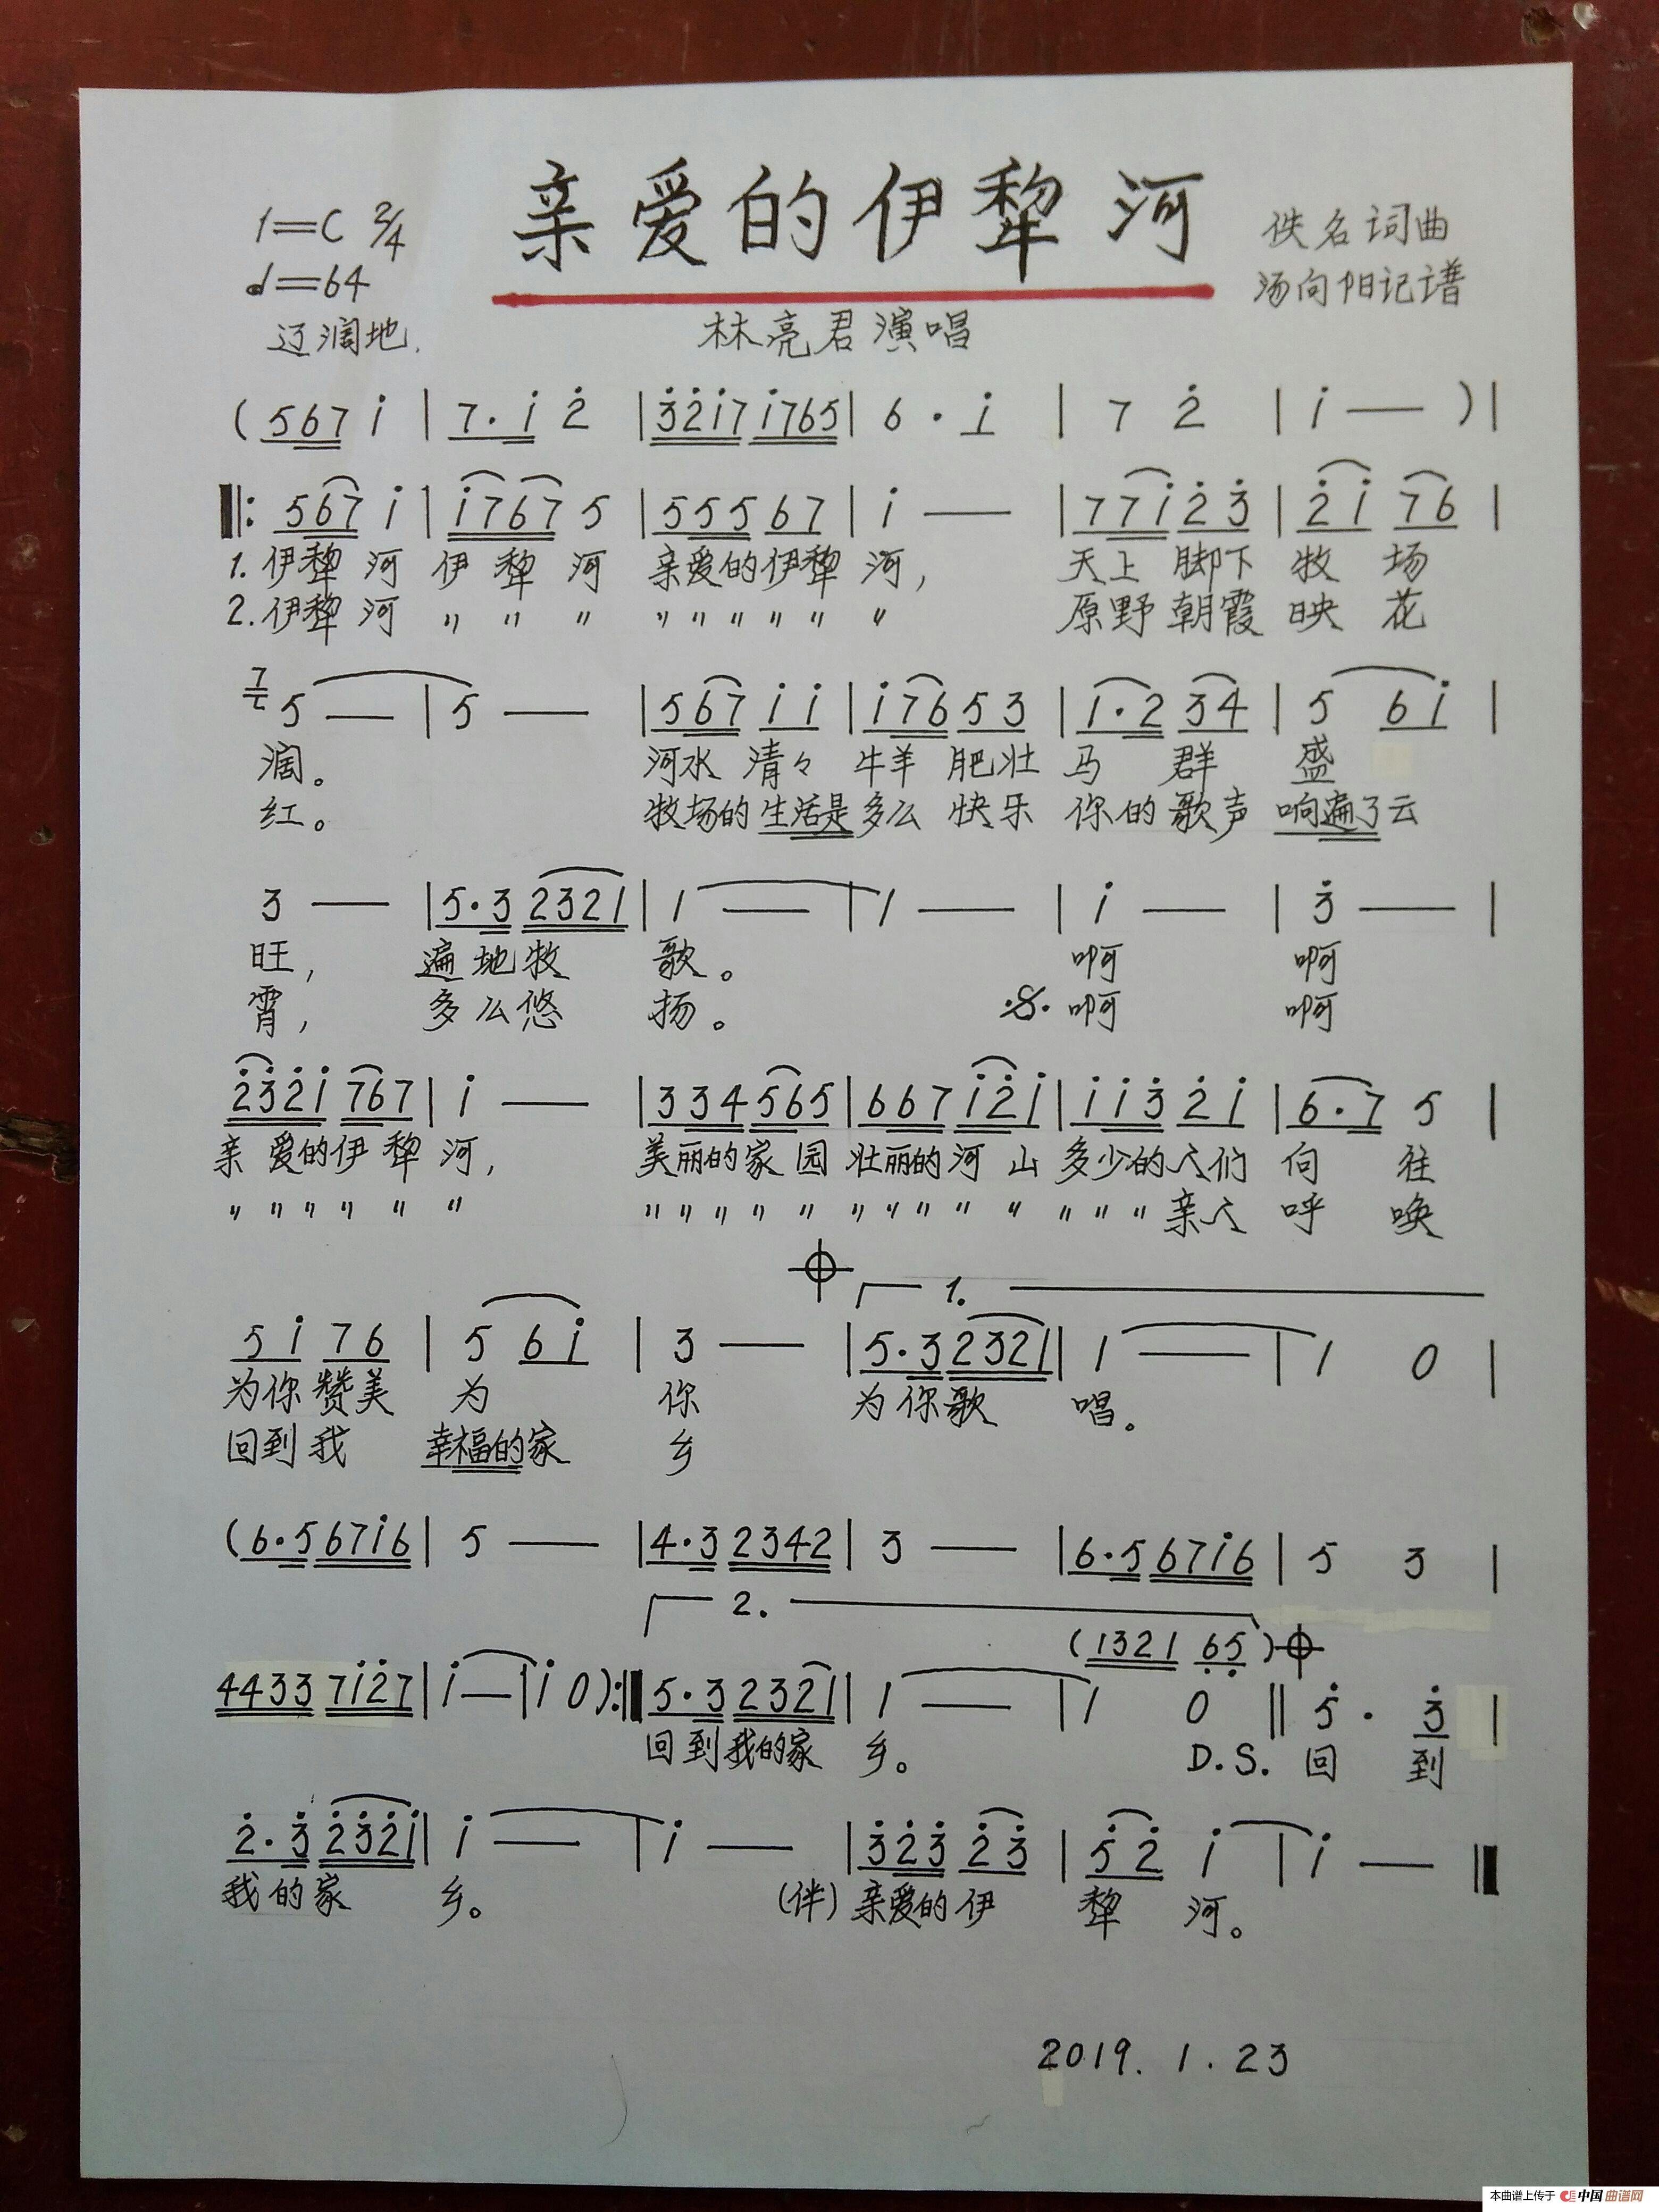 亲爱的伊犁河
1=C 2/4
佚名词曲
♩=64
汤向阳记谱
辽阔地.
林亮君演唱
( 5 6 7 i̇ | 7 · i̇ 2̇ | 3̇ 2̇ i̇ 7 i̇ 7 6 5 | 6 · i̇ | 7 2̇ | i̇ — ) |
‖: 5 6 7 i̇ | i̇ 7 6 7 5 | 5 5 5 6 7 | i̇ — | 7 7 i̇ 2̇ 3̇ | 2̇ i̇ 7 6 |
1. 伊犁 河 伊 犁 河 亲爱的伊犁 河, 天上 脚下 牧 场
2. 伊犁 河 〃 〃 〃 〃 〃 〃 〃 〃 〃 原野 朝霞 映 花
7 5 — | 5 — | 5 6 7 i̇ i̇ | i̇ 7 6 5 3 | 1 · 2 3 4 | 5 6 i̇ |
阔。 河水 清々 牛羊 肥壮 马 群 盛
红。 牧场的 生活是 多么 快乐 你的 歌声 响遍了云
3 — | 5 · 3 2 3 2 1 | 1 — | 1 — | i̇ — | 3̇ — |
旺, 遍地牧 歌。 啊 啊
霄, 多么悠 扬。 𝄋 啊 啊
2̇ 3̇ 2̇ i̇ 7 6 7 | i̇ — | 3 3 4 5 6 5 | 6 6 7 i̇ 2̇ i̇ | i̇ i̇ 3̇ 2̇ i̇ | 6 · 7 5 |
亲 爱的伊 犁 河, 美丽的家 园 壮丽的河 山 多少的人们 向 往
〃 〃 〃 〃 〃 〃 〃 〃 〃 〃 〃 〃 〃 〃 〃 〃 〃 〃 〃 亲人 呼 唤
𝄌 1.
5 i̇ 7 6 | 5 6 i̇ | 3 — | 5 · 3 2 3 2 1 | 1 — | 1 0 |
为你 赞美 为 你 为你歌 唱。
回到 我 幸福的家 乡
( 6 · 5 6 7 i̇ 6 | 5 — | 4 · 3 2 3 4 2 | 3 — | 6 · 5 6 7 i̇ 6 | 5 3 |
2.
( 1 3 2 1 6̣ 5̣ ) 𝄌
4 4 3 3 7 i̇ 2̇ 7 | i̇ — | i̇ 0 ) :‖ 5 · 3 2 3 2 1 | 1 — | 1 0 ‖ 5̇ · 3̇ |
回到我的家 乡。 D.S. 回 到
2̇ · 3̇ 2̇ 3̇ 2̇ i̇ | i̇ — | i̇ — | 3̇ 2̇ 3̇ 2̇ 3̇ | 5̇ 2̇ i̇ | i̇ — ‖
我的家 乡。 (伴) 亲爱的 伊 犁 河。
2019. 1. 23
本曲谱上传于 中国曲谱网